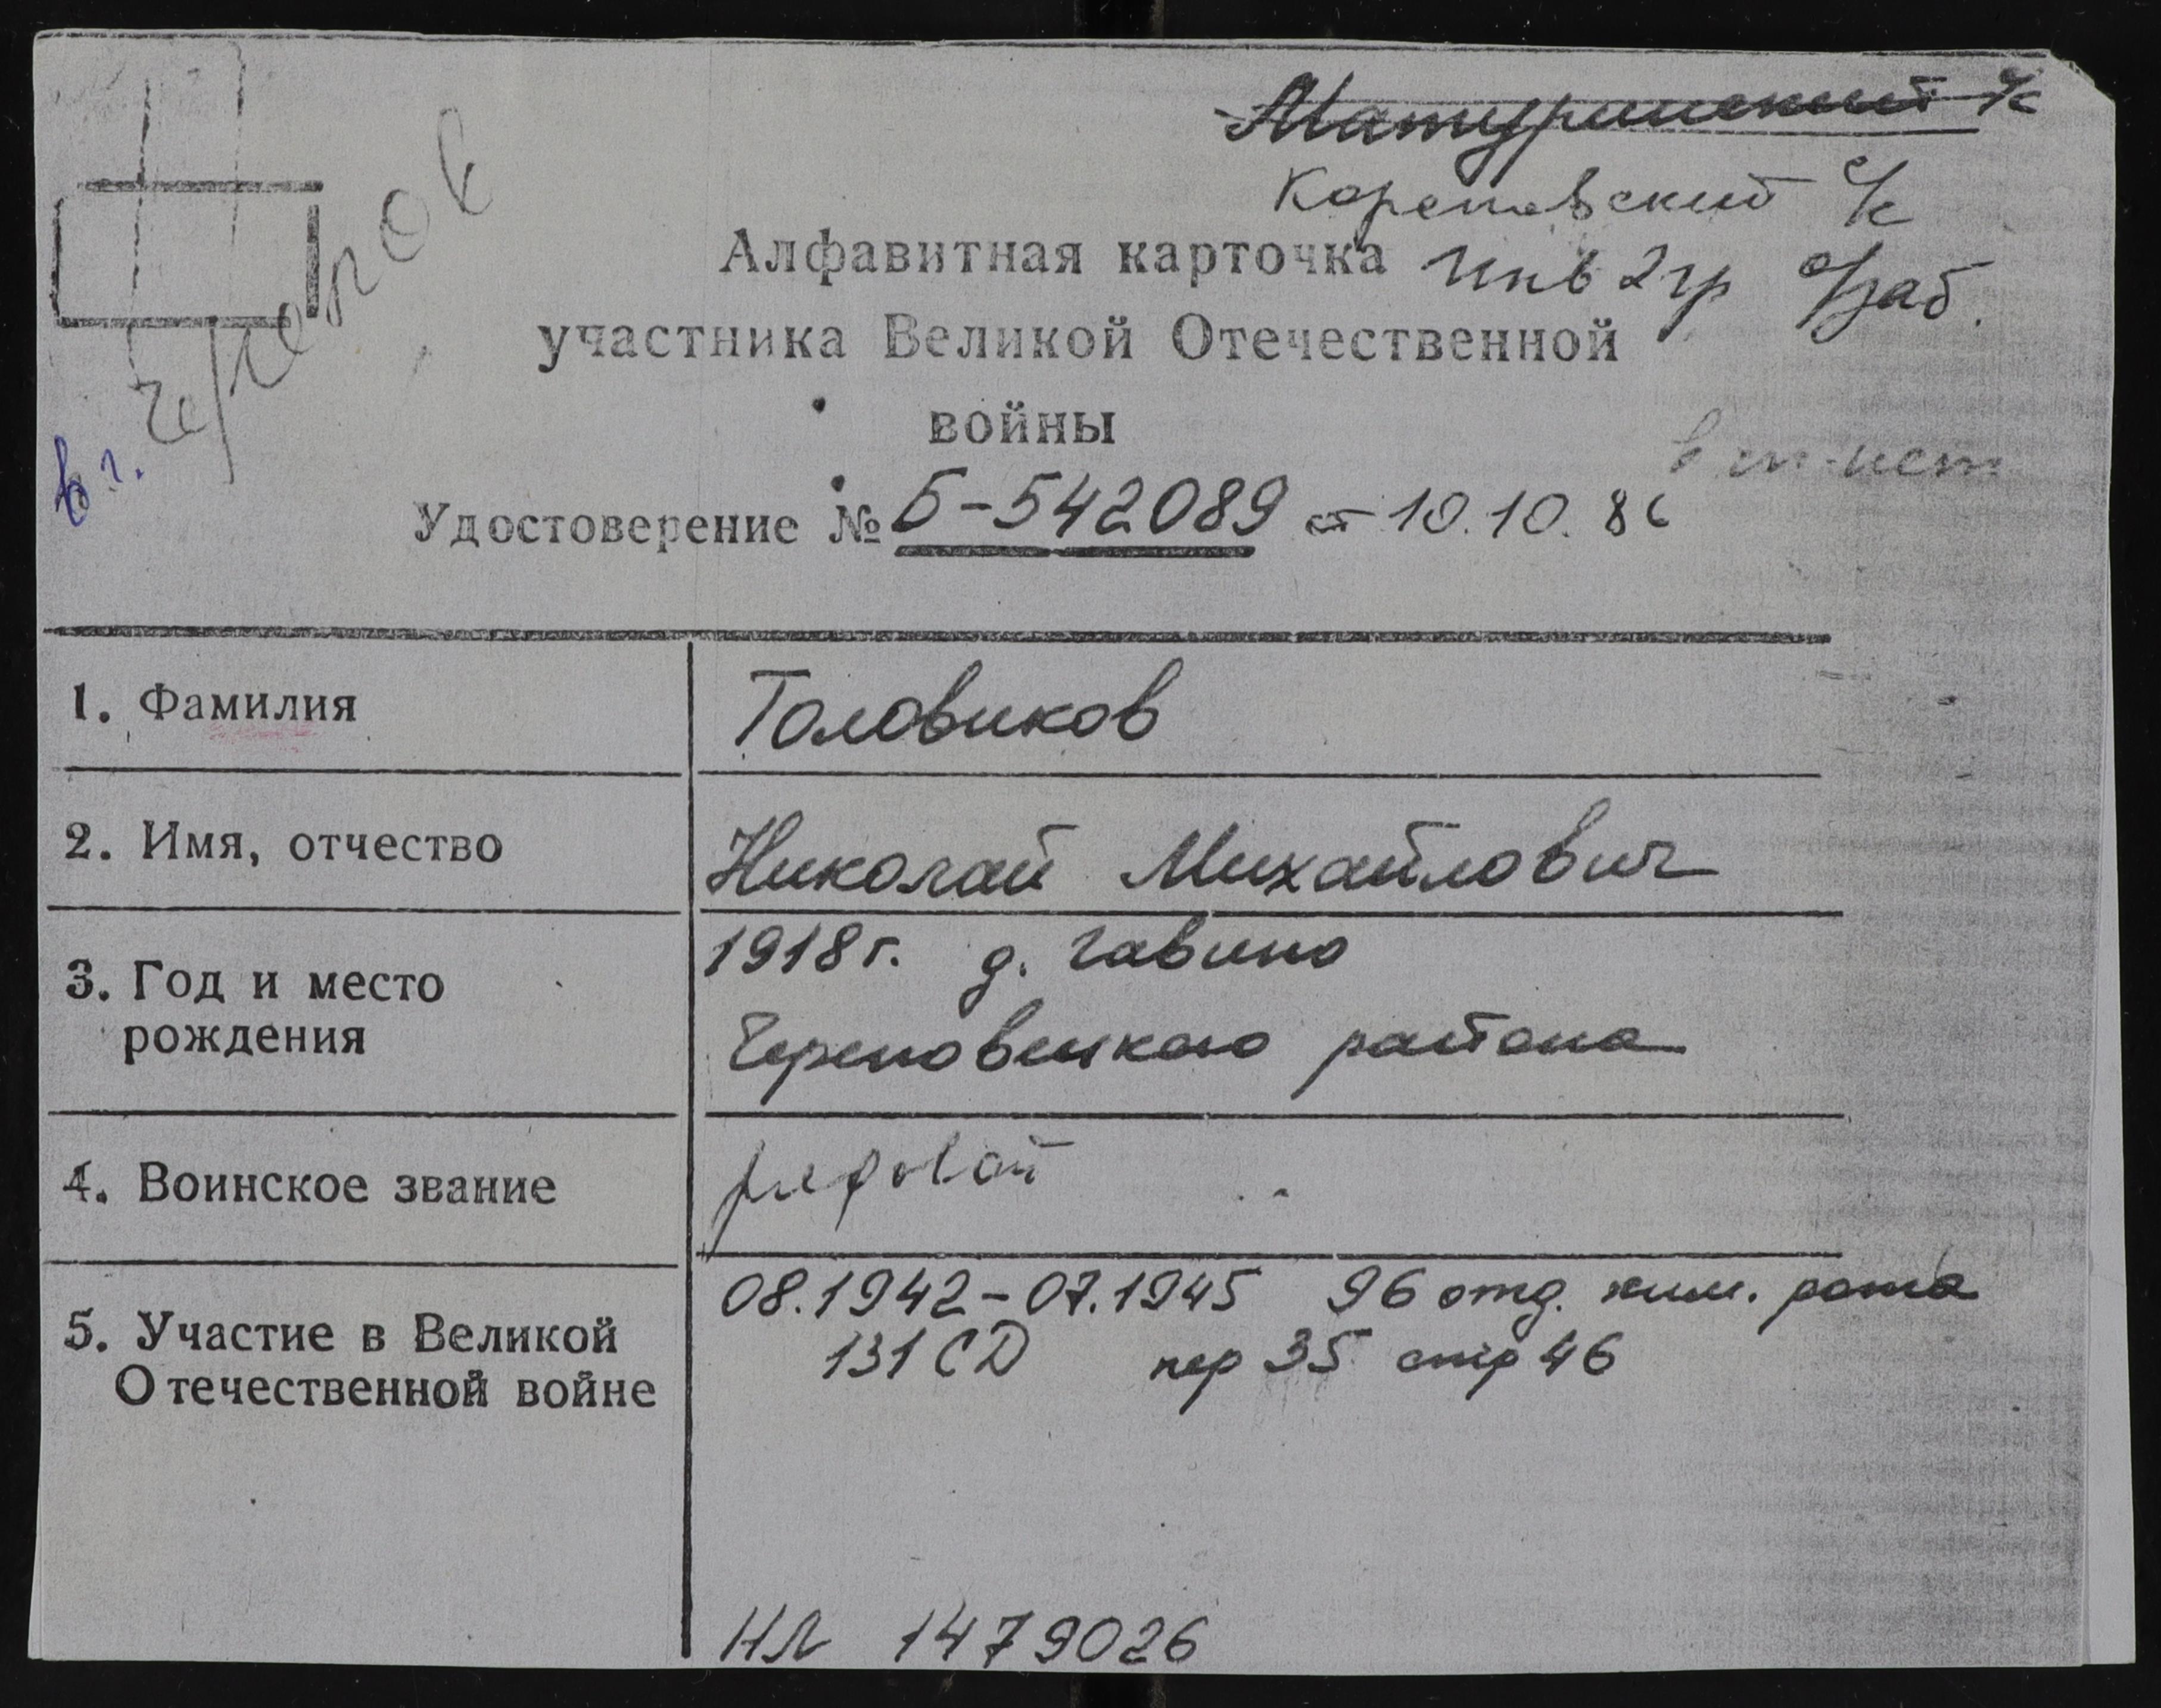 Матуринский с/с
Коротовский с/с
Алфавитная карточка инв 2 гр о/заб.
участника Великой Отечественной
войны
в г.
Удостоверение № Б-542089 от 10.10.86
1. Фамилия
Головиков
2. Имя, отчество
Николай Михайлович
3. Год и место
рождения
1918г. д. Гавино
Череповецкого района
4. Воинское звание
рядовой
5. Участие в Великой
Отечественной войне
08.1942-07.1945 96 отд. хим. рота
131 СД пер 35 стр 46
НЛ 1479026